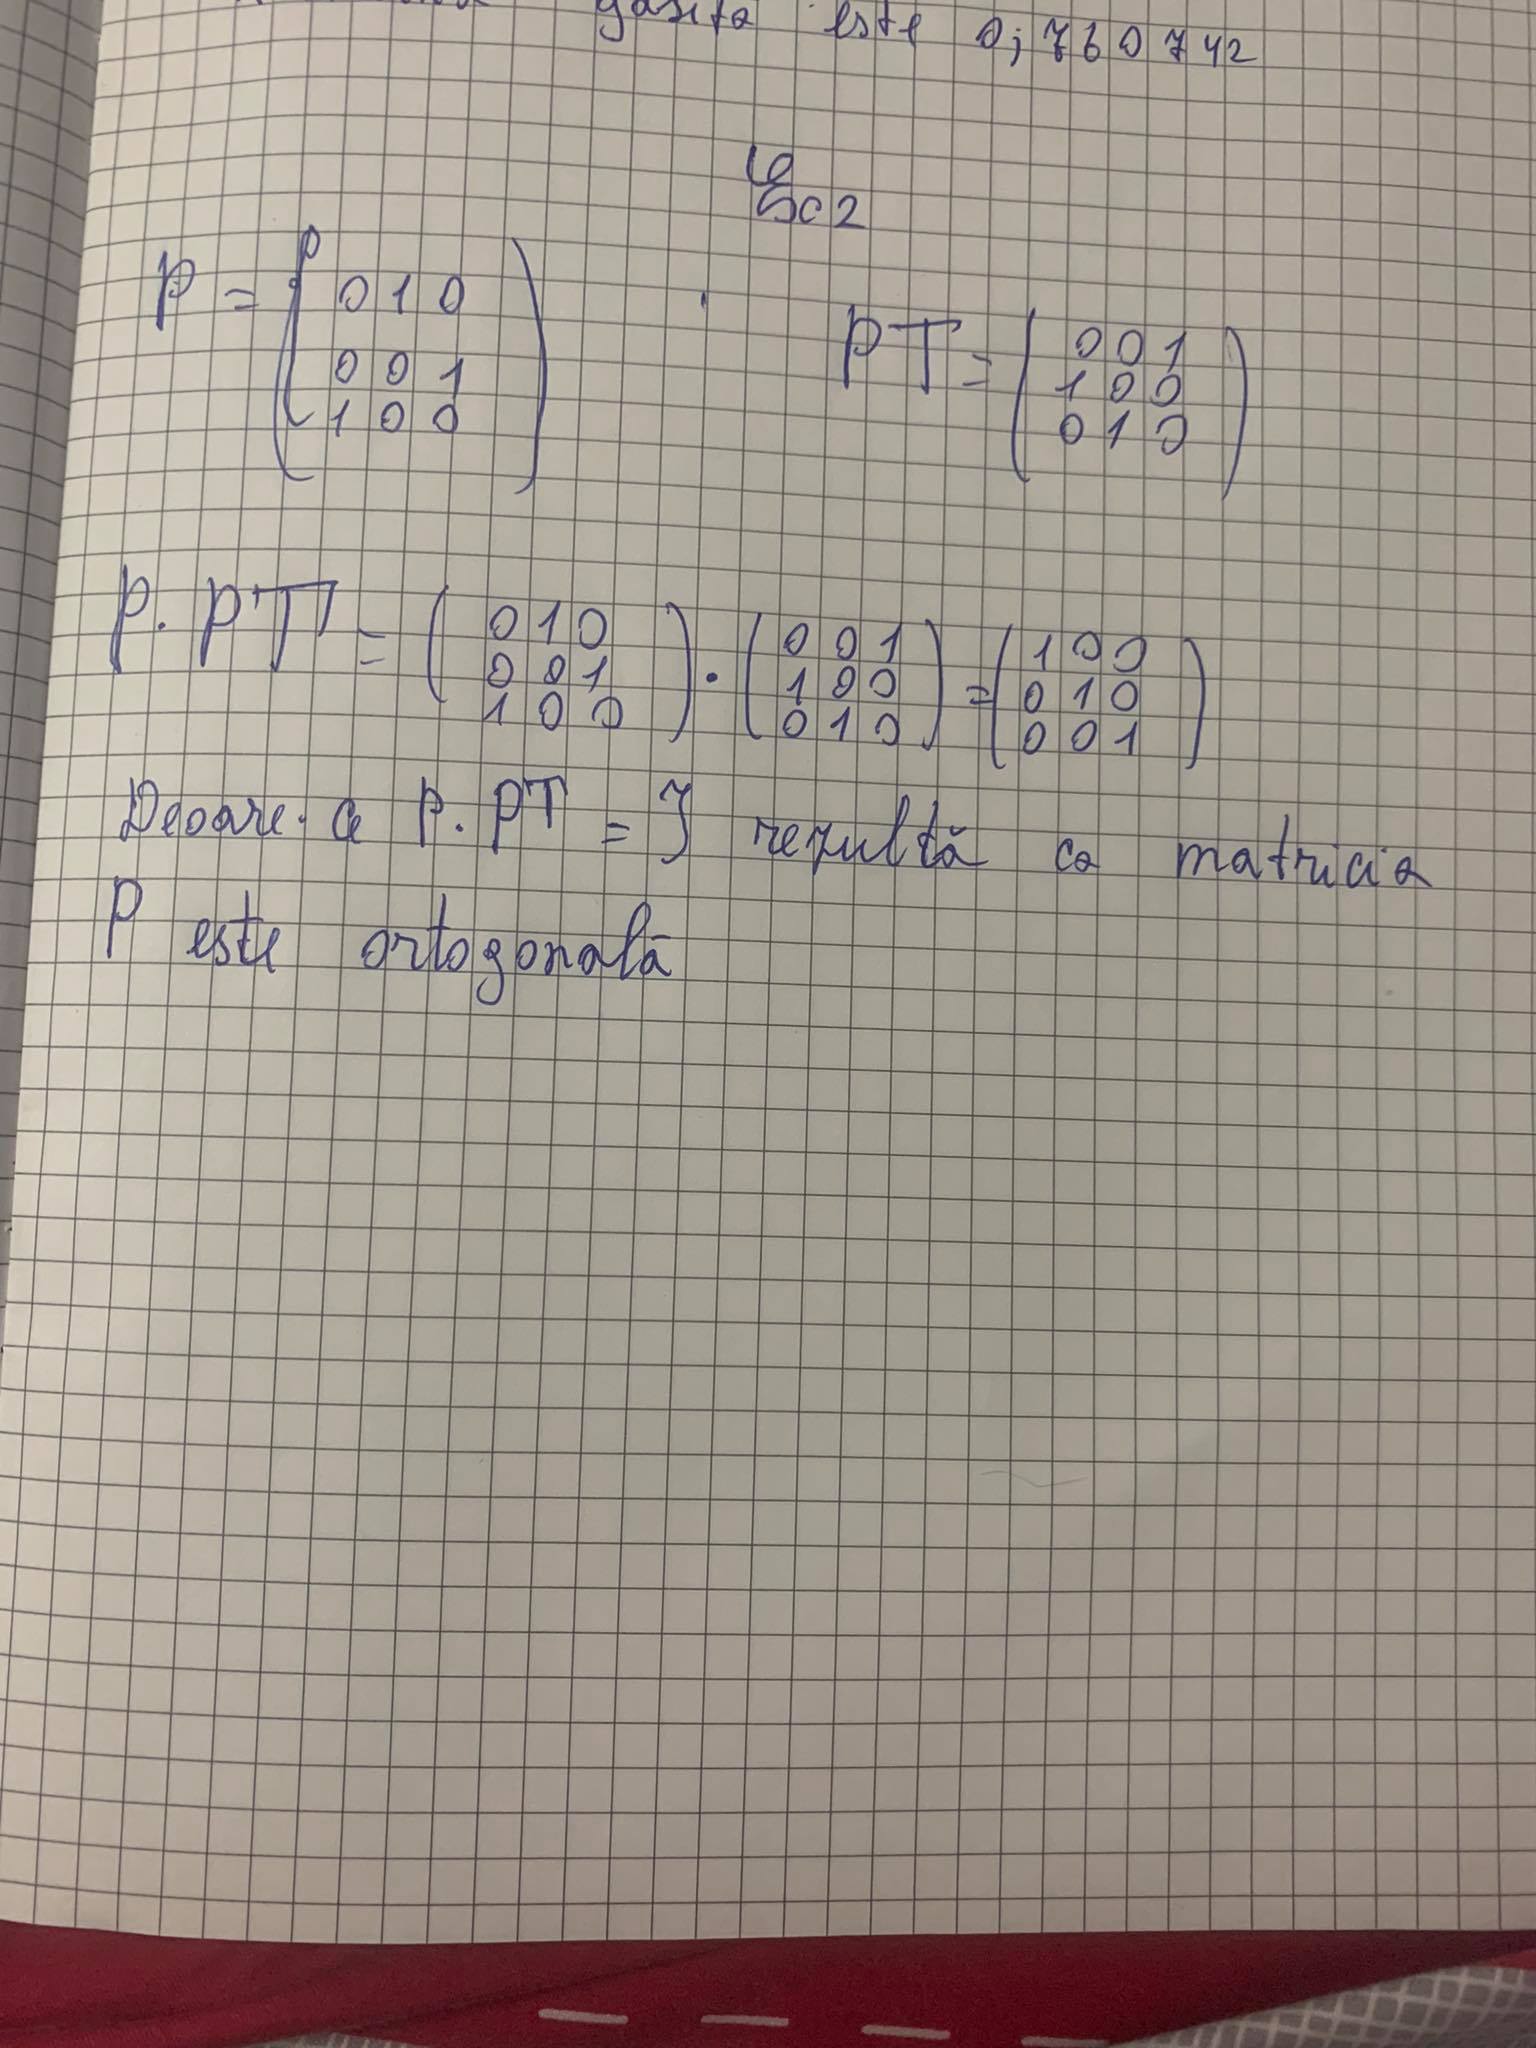 găsita este 0,760742
Ex 2
P = ( 0 1 0
0 0 1
1 0 0 )
PT = ( 0 0 1
1 0 0
0 1 0 )
P. PT = ( 0 1 0
0 0 1
1 0 0 ) . ( 0 0 1
1 0 0
0 1 0 ) = ( 1 0 0
0 1 0
0 0 1 )
Deoare. ce P. PT = I rezultă ca matricia
P este ortogonală